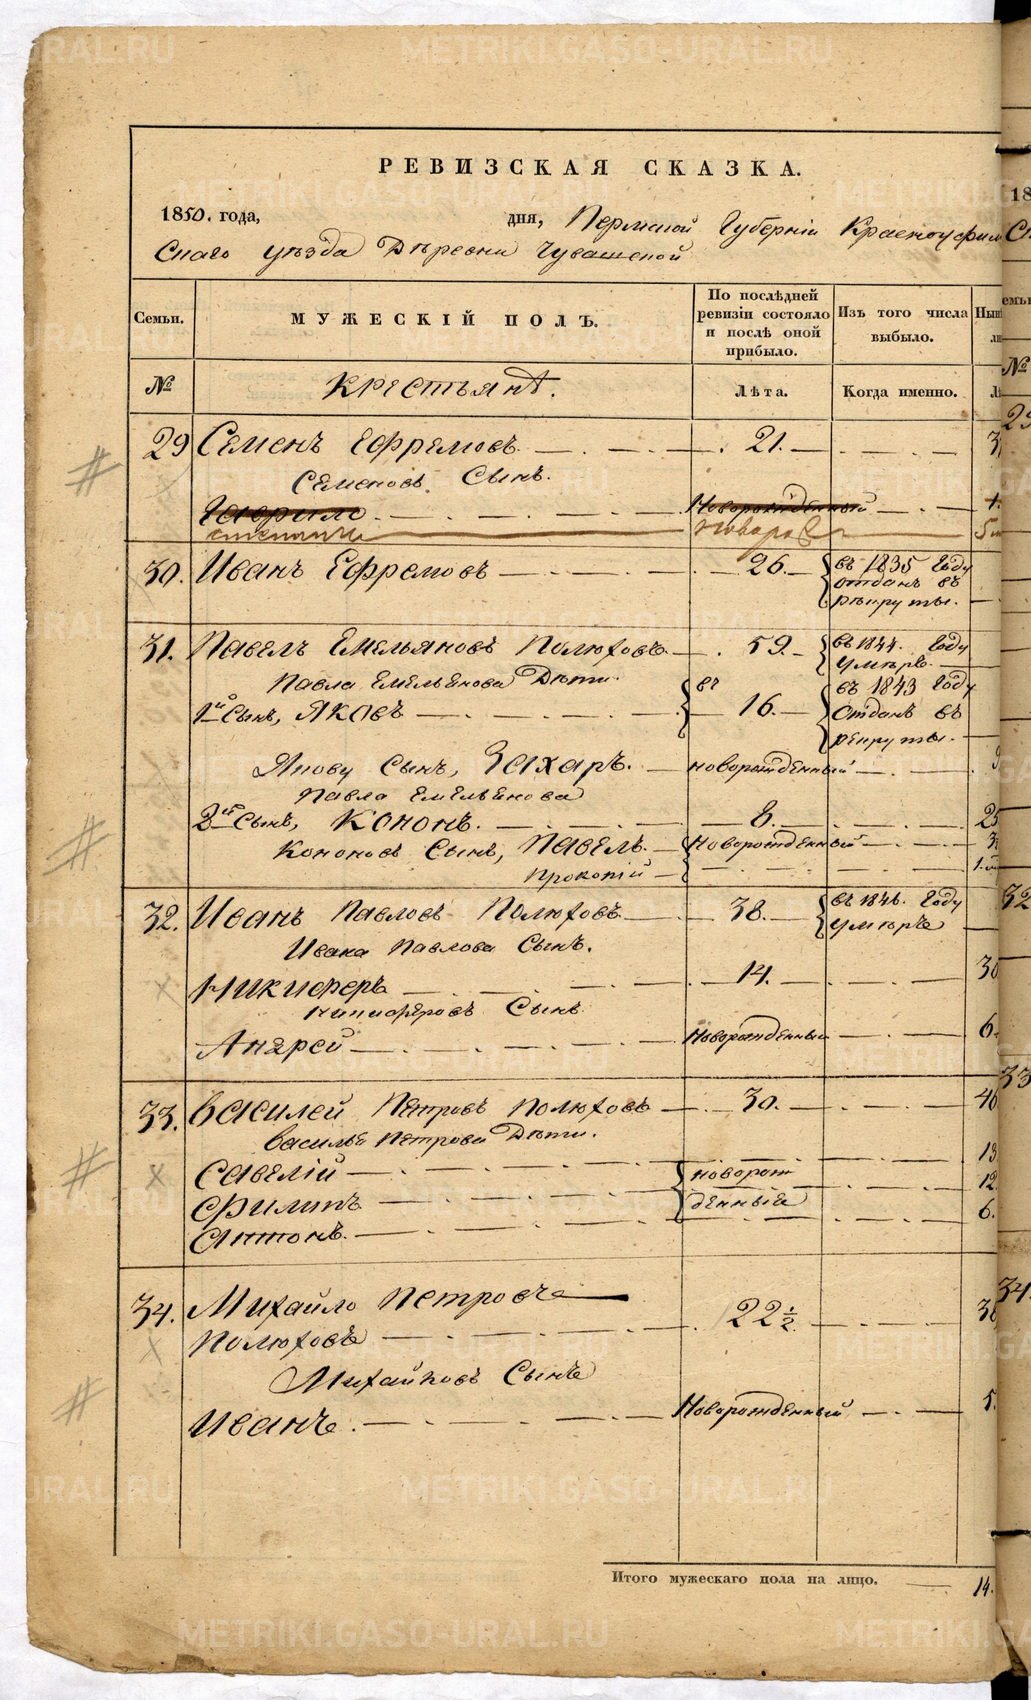 РЕВИЗСКАЯ СКАЗКА.
1850. года, дня, Пермской Губерніи Красноуфим
скаго уѣзда Дѣревни Чувашской
Семьи. МУЖЕСКІЙ ПОЛЪ. По послѣдней ревизіи состояло и послѣ оной прибыло. Изъ того числа выбыло.
№ Крестьянъ. Лѣта. Когда именно.
29 Семенъ Ефремовъ 21.
Семеновъ Сынъ.
Гаврило Новорожденный 1.
Новорож 5
30. Иванъ Ефремовъ 26. въ 1835 Году
отданъ въ
рѣкруты.
31. Павелъ Емельяновъ Полюховъ 59. въ 1844. Году
умѣръ
Павла Емельянова Дѣти въ 1843 Году
1й Сынъ, Яковъ 16. отданъ въ
рекруты.
Якову Сынъ, Захаръ. новорожденный
Павла Емельянова
2й Сынъ, Кононъ. 8. 25
Кононовъ Сынъ, Павелъ. Новорожденный
Прокопій
32. Иванъ Павловъ Полюховъ 38. въ 1846. Году
умѣръ
Ивана Павлова Сынъ.
Никиферъ 14. 30
Никиферовъ Сынъ
Андрей Новорожденный 6.
33. Василей Петровъ Полюховъ 30. 46
Василья Петрова Дѣти.
Савелій новорож 13
Филипъ денныѣ 12
Антонъ. 6.
34. Михайло Петровъ
Полюховъ 22 1/2 38
Михайловъ Сынъ
Иванъ. Новорожденный 5.
Итого мужескаго пола на лицо. 14.
METRIKI.GASO-URAL.RU